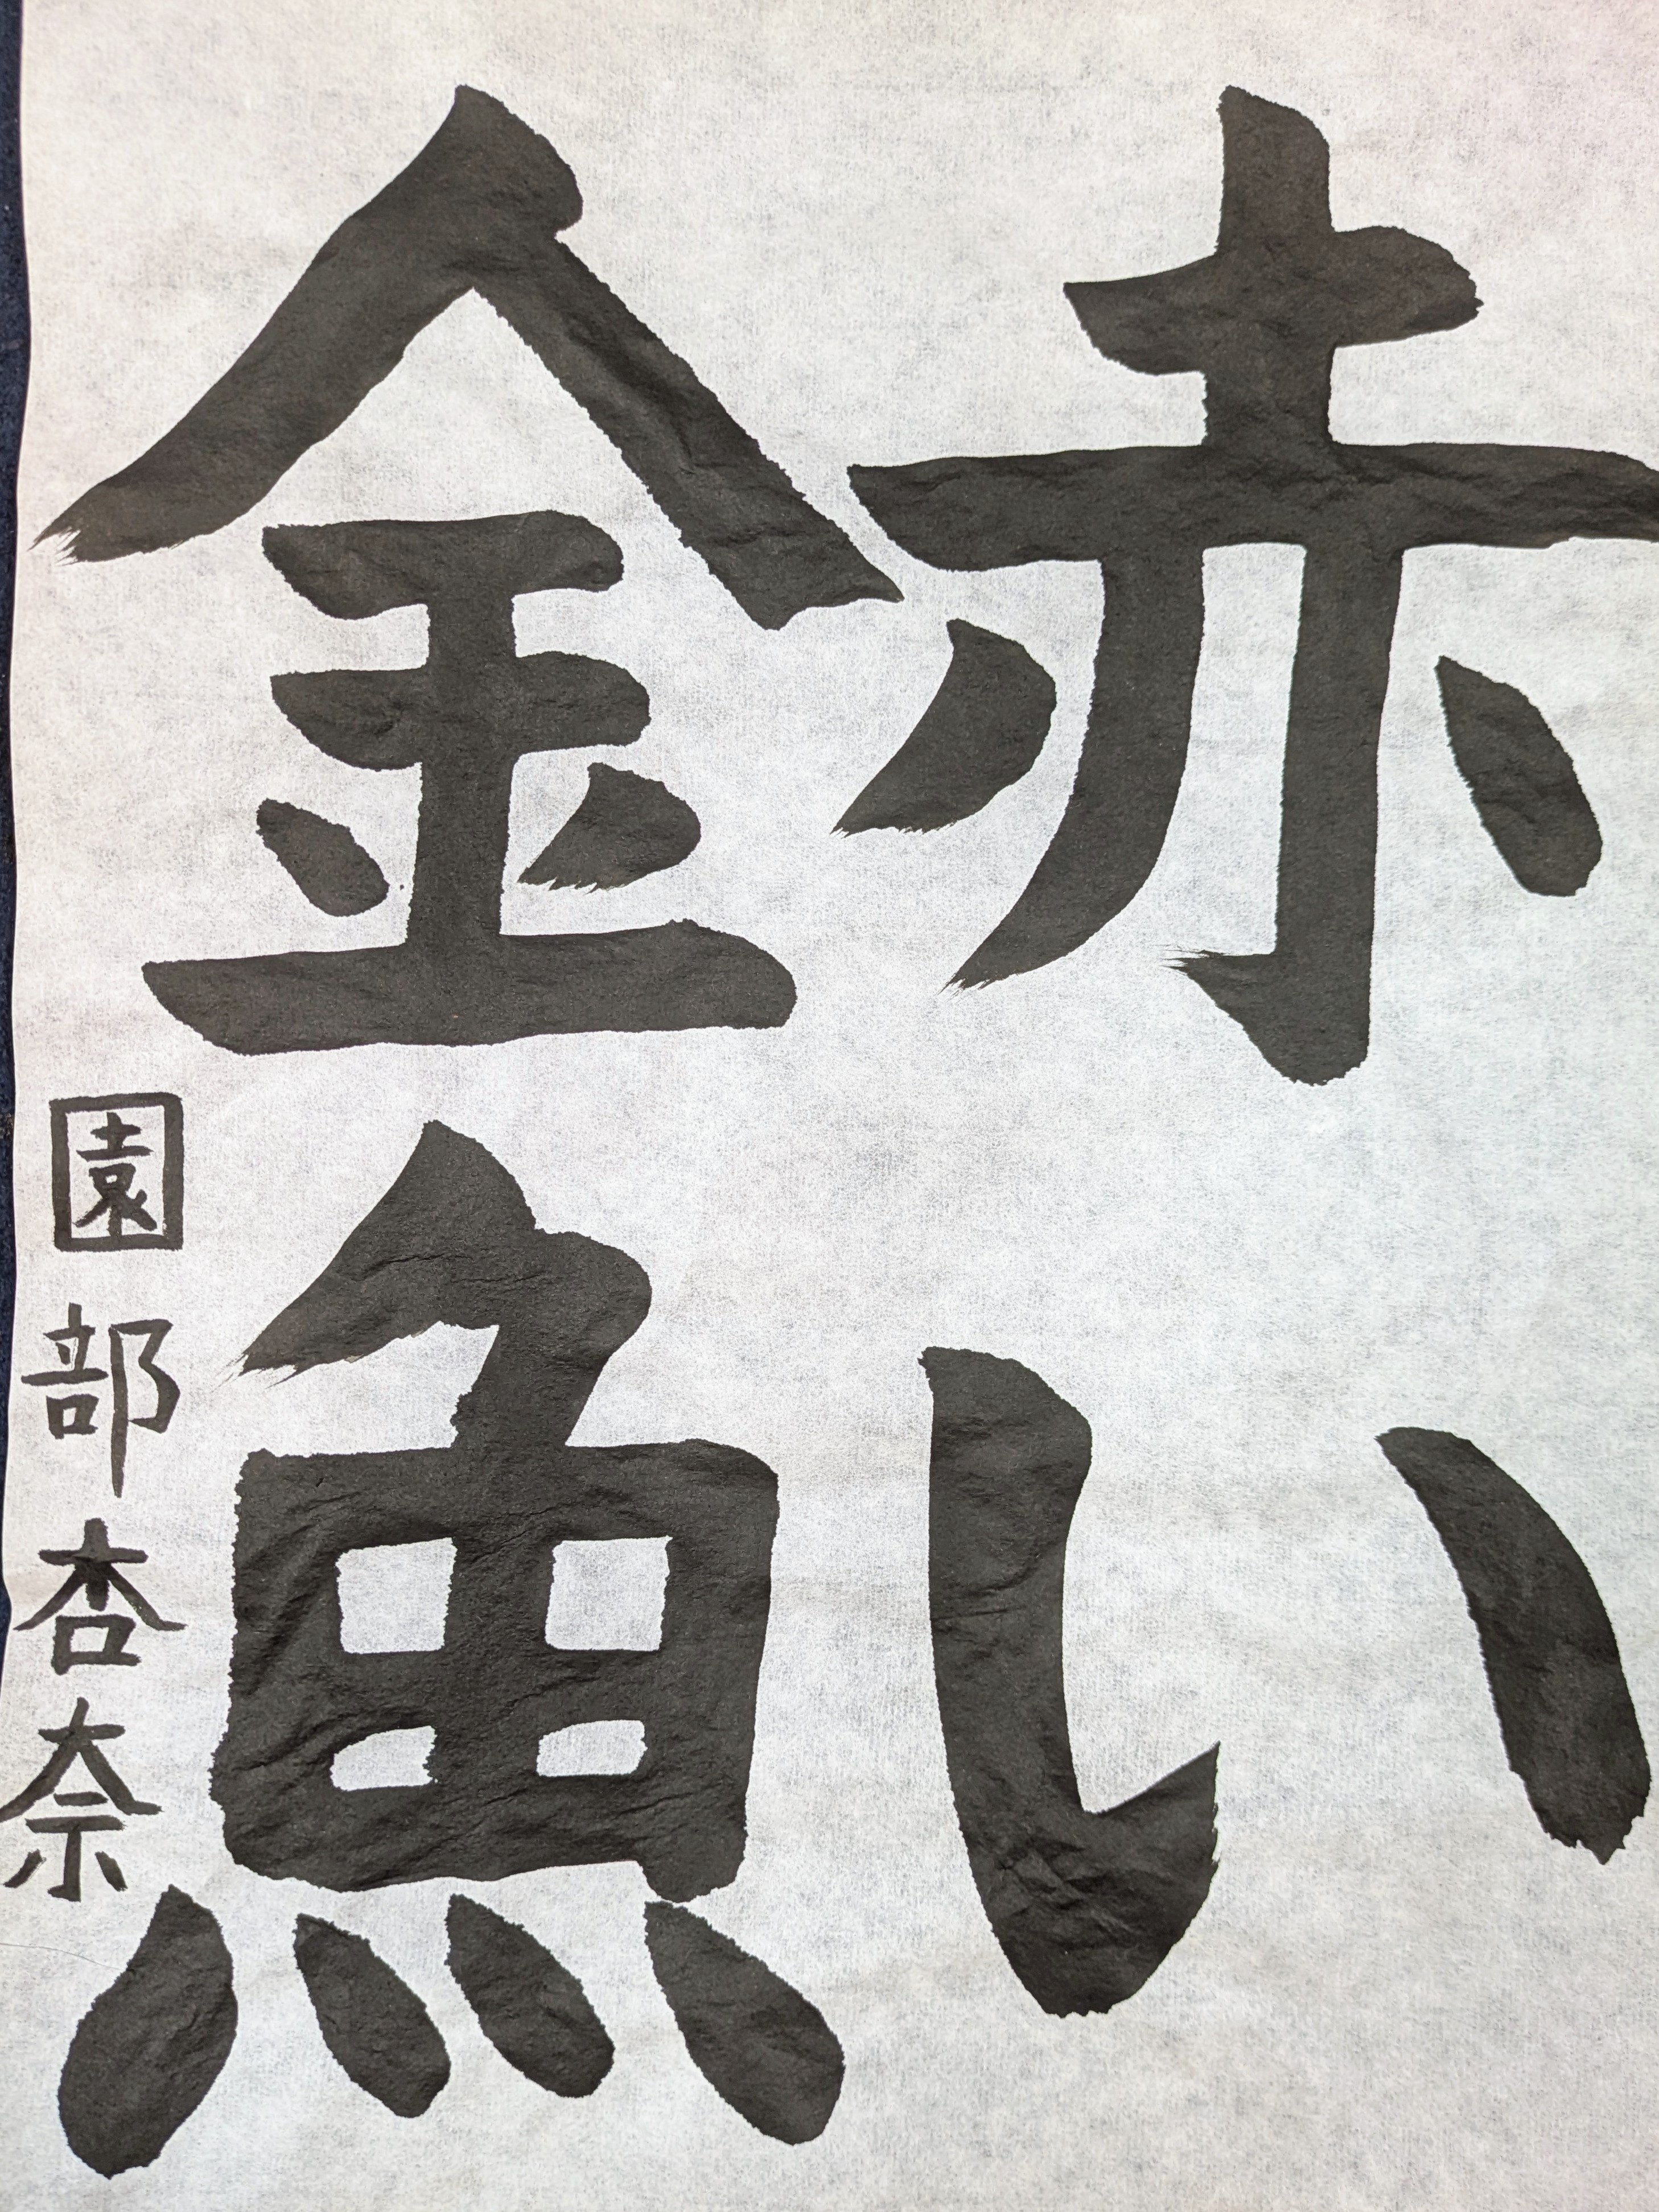 赤い
金魚
園部杏奈